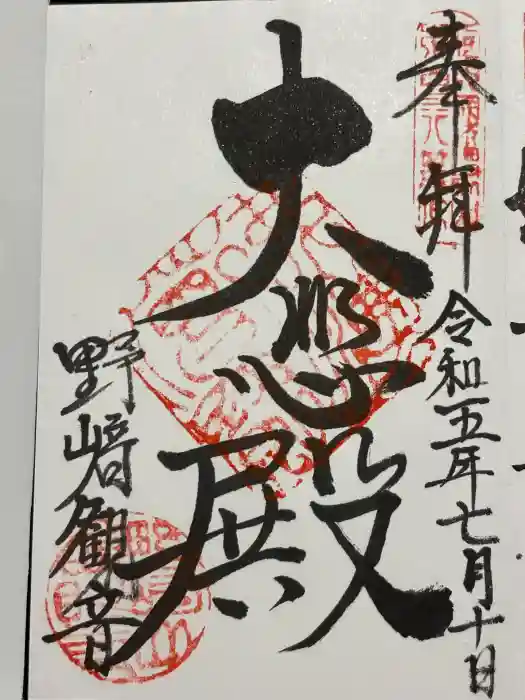 奉拝
令和五年七月十日
大悲殿
野崎観音